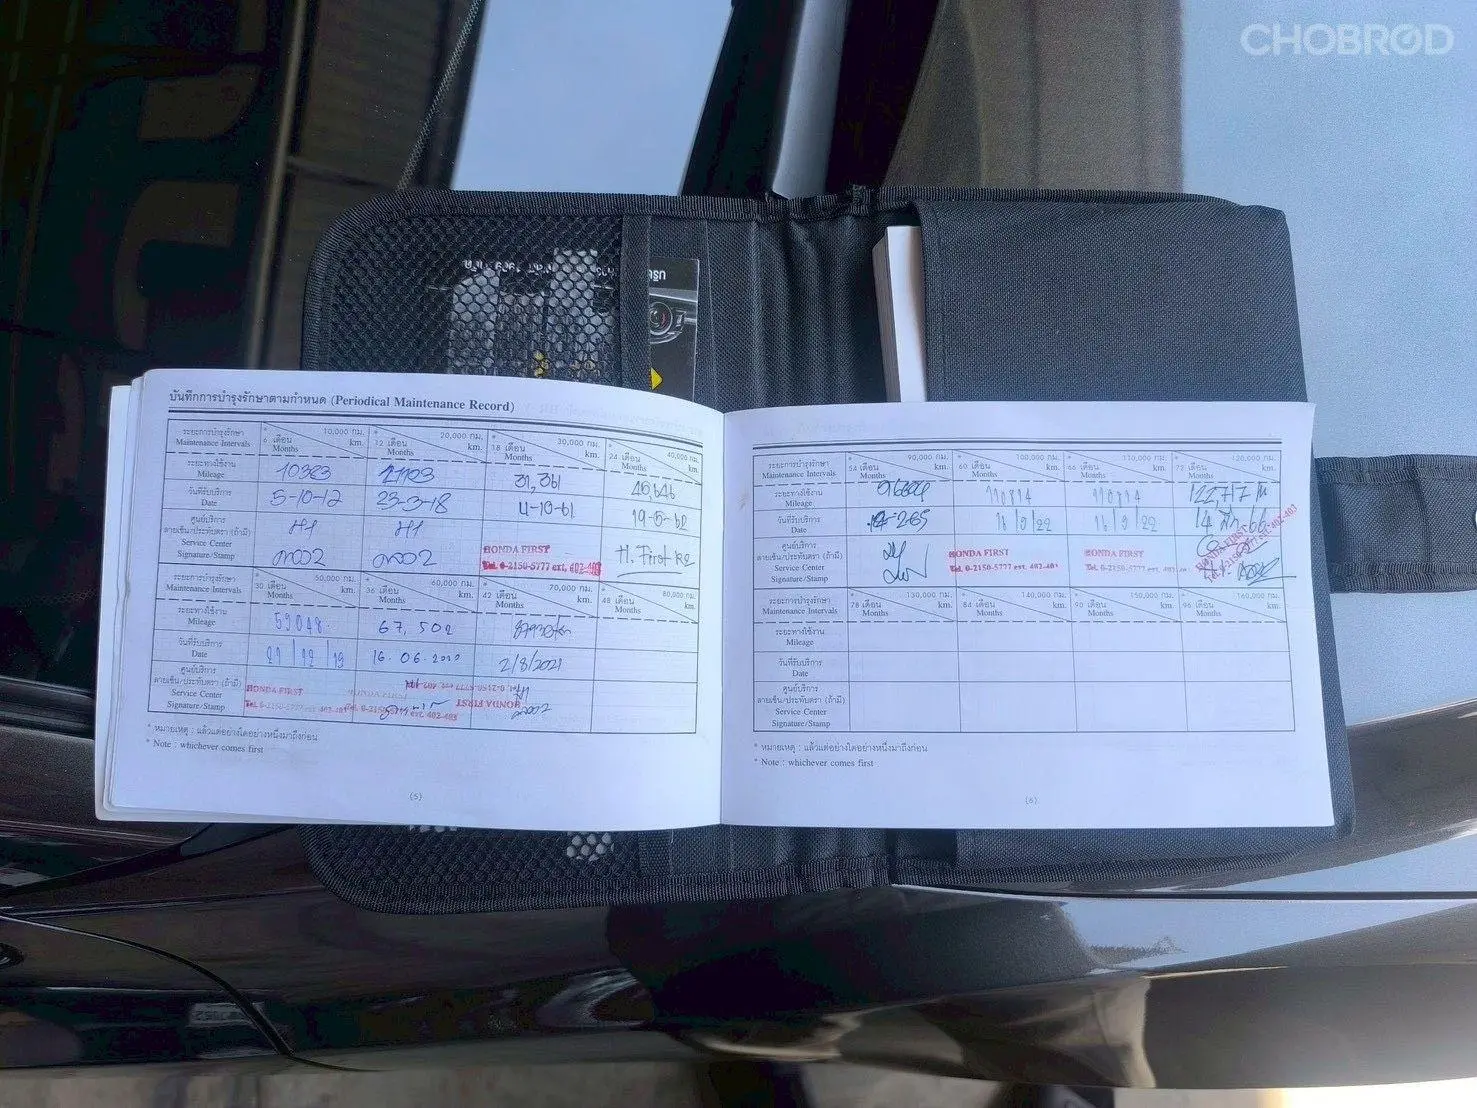 CHOBROD
บันทึกการบำรุงรักษาตามกำหนด (Periodical Maintenance Record)
ระยะการบำรุงรักษา 6 เดือน 10,000 กม. 12 เดือน 20,000 กม. 18 เดือน 30,000 กม. 24 เดือน 40,000 กม.
Maintenance Intervals Months km. Months km. Months km. Months km.
ระยะทางใช้งาน
Mileage 10383 21123 31,361 40646
วันที่รับบริการ
Date 5-10-17 23-3-18 4-10-61 19-5-62
ศูนย์บริการ
ลายเซ็น/ประทับตรา (ถ้ามี)
Service Center HONDA FIRST
Signature/Stamp Tel. 0-2150-5777 ext. 402-403
ระยะการบำรุงรักษา 30 เดือน 50,000 กม. 36 เดือน 60,000 กม. 42 เดือน 70,000 กม. 48 เดือน 80,000 กม.
Maintenance Intervals Months km. Months km. Months km. Months km.
ระยะทางใช้งาน
Mileage 59048 67,502
วันที่รับบริการ
Date 21/12/19 16.06.2020 2/8/2021
ศูนย์บริการ
ลายเซ็น/ประทับตรา (ถ้ามี)
Service Center HONDA FIRST HONDA FIRST HONDA FIRST
Signature/Stamp Tel. 0-2150-5777 ext. 402-403
* หมายเหตุ : แล้วแต่อย่างใดอย่างหนึ่งมาถึงก่อน
* Note : whichever comes first
(5)
ระยะการบำรุงรักษา 54 เดือน 90,000 กม. 60 เดือน 100,000 กม. 66 เดือน 110,000 กม. 72 เดือน 120,000 กม.
Maintenance Intervals Months km. Months km. Months km. Months km.
ระยะทางใช้งาน
Mileage 110814 110814 122717
วันที่รับบริการ
Date 16/9/22 16/9/22
ศูนย์บริการ
ลายเซ็น/ประทับตรา (ถ้ามี) HONDA FIRST HONDA FIRST HONDA FIRST
Service Center Tel. 0-2150-5777 ext. 402-403 Tel. 0-2150-5777 ext. 402-403
Signature/Stamp
ระยะการบำรุงรักษา 78 เดือน 130,000 กม. 84 เดือน 140,000 กม. 90 เดือน 150,000 กม. 96 เดือน 160,000 กม.
Maintenance Intervals Months km. Months km. Months km. Months km.
ระยะทางใช้งาน
Mileage
วันที่รับบริการ
Date
ศูนย์บริการ
ลายเซ็น/ประทับตรา (ถ้ามี)
Service Center
Signature/Stamp
* หมายเหตุ : แล้วแต่อย่างใดอย่างหนึ่งมาถึงก่อน
* Note : whichever comes first
(6)